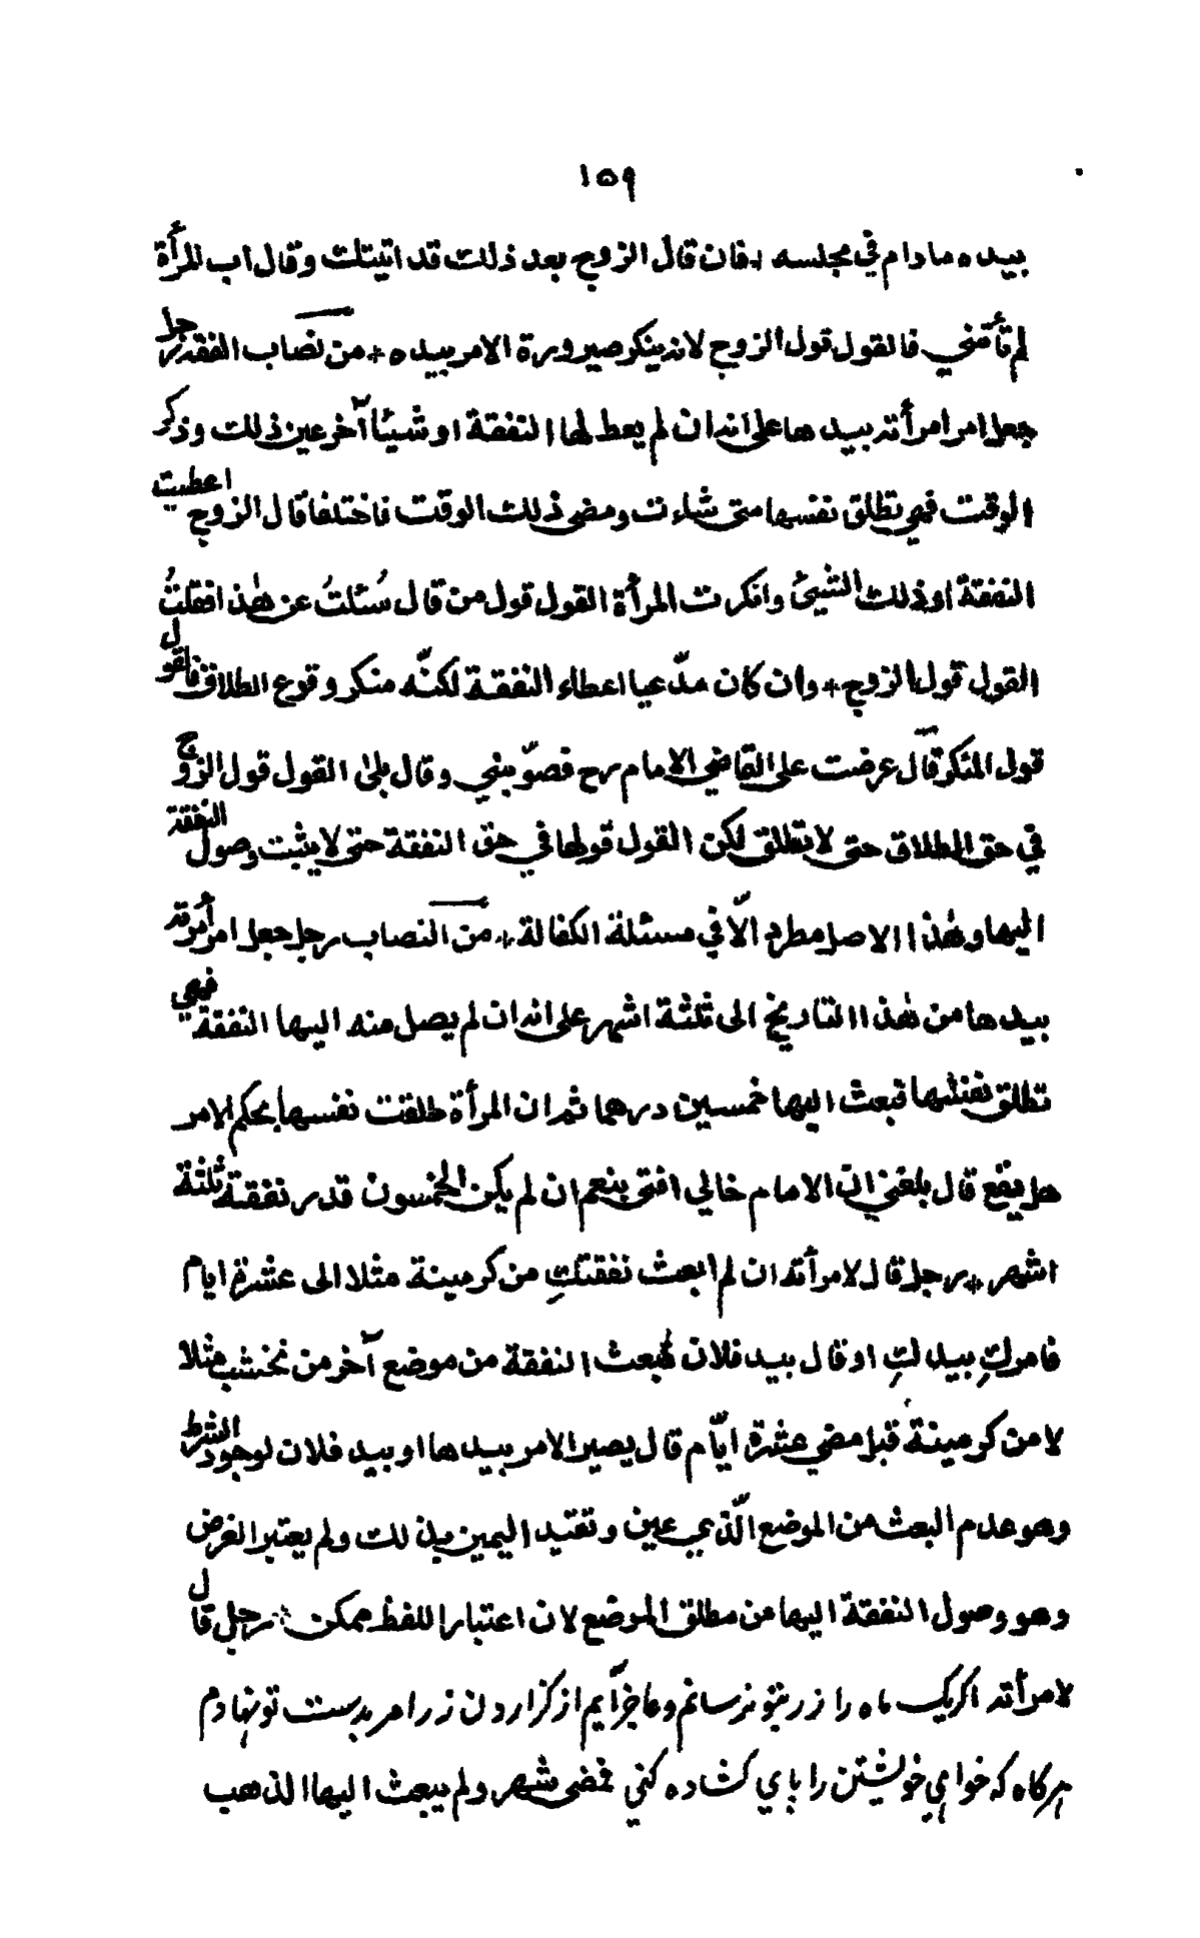 ١٥٩
بيده ما دام في مجلسه * فان قال الزوج بعد ذلك قد اتيتك وقال اب المرأة
لم تأتني فالقول قول الزوج لانه ينكر صيرورة الامر بيده * من نصاب الفقه رجل
جعل امر امرأته بيدها على انه ان لم يعط لها النفقة او شيئا آخر عين ذلك وذكر
الوقت فهي تطلق نفسها متى شاءت ومضى ذلك الوقت فاختلفا قال الزوج اعطيت
النفقة او ذلك الشيئ وانكرت المرأة القول قول من قال سُئلتُ عن هٰذا فقلتُ
القول قول الزوج * وان كان مدّعيا اعطاء النفقة لكنّه منكر وقوع الطلاق فالقول
قول المنكر قال عرضت على القاضي الامام رح فصوّبني وقال بلىٰ القول قول الزوج
في حق الطلاق حتى لا تطلق لكن القول قولها في حق النفقة حتى لا يثبت وصول النفقة
اليها وهٰذا الاصل مطرد الّا في مسئلة الكفالة * من النصاب رجل جعل امر امرأته
بيدها من هٰذا التاريخ الى ثلثة اشهر على انه ان لم يصل منه اليها النفقة فهي
تطلق نفسها فبعث اليها خمسين درهما ثم ان المرأة طلقت نفسها بحكم الامر
هل يقع قال بلغني انّ الامام خالي افتى بنعم ان لم يكن الخمسون قدر نفقة ثلثة
اشهر * رجل قال لامرأته ان لم ابعث نفقتكِ من كرمينة مثلا الى عشرة ايام
فامركِ بيدكِ او قال بيد فلان فبعث النفقة من موضع آخر من نخشب مثلا
لا من كرمينة قبل مضي عشرة ايّام قال يصير الامر بيدها او بيد فلان لوجود الشرط
وهو عدم البعث من الموضع الّذي عين وتقيد اليمين بذلك ولم يعتبر الغرض
وهو وصول النفقة اليها من مطلق الموضع لان اعتبار اللفظ ممكن * رجل قال
لامرأته اكر يك ماه را زر بتو نرسانم وعاجز آيم از كزاردن زر امر بدست تو نهادم
هركاه كه خواهي خويشتن را پاي كشاده كني فمضى شهر ولم يبعث اليها الذهب